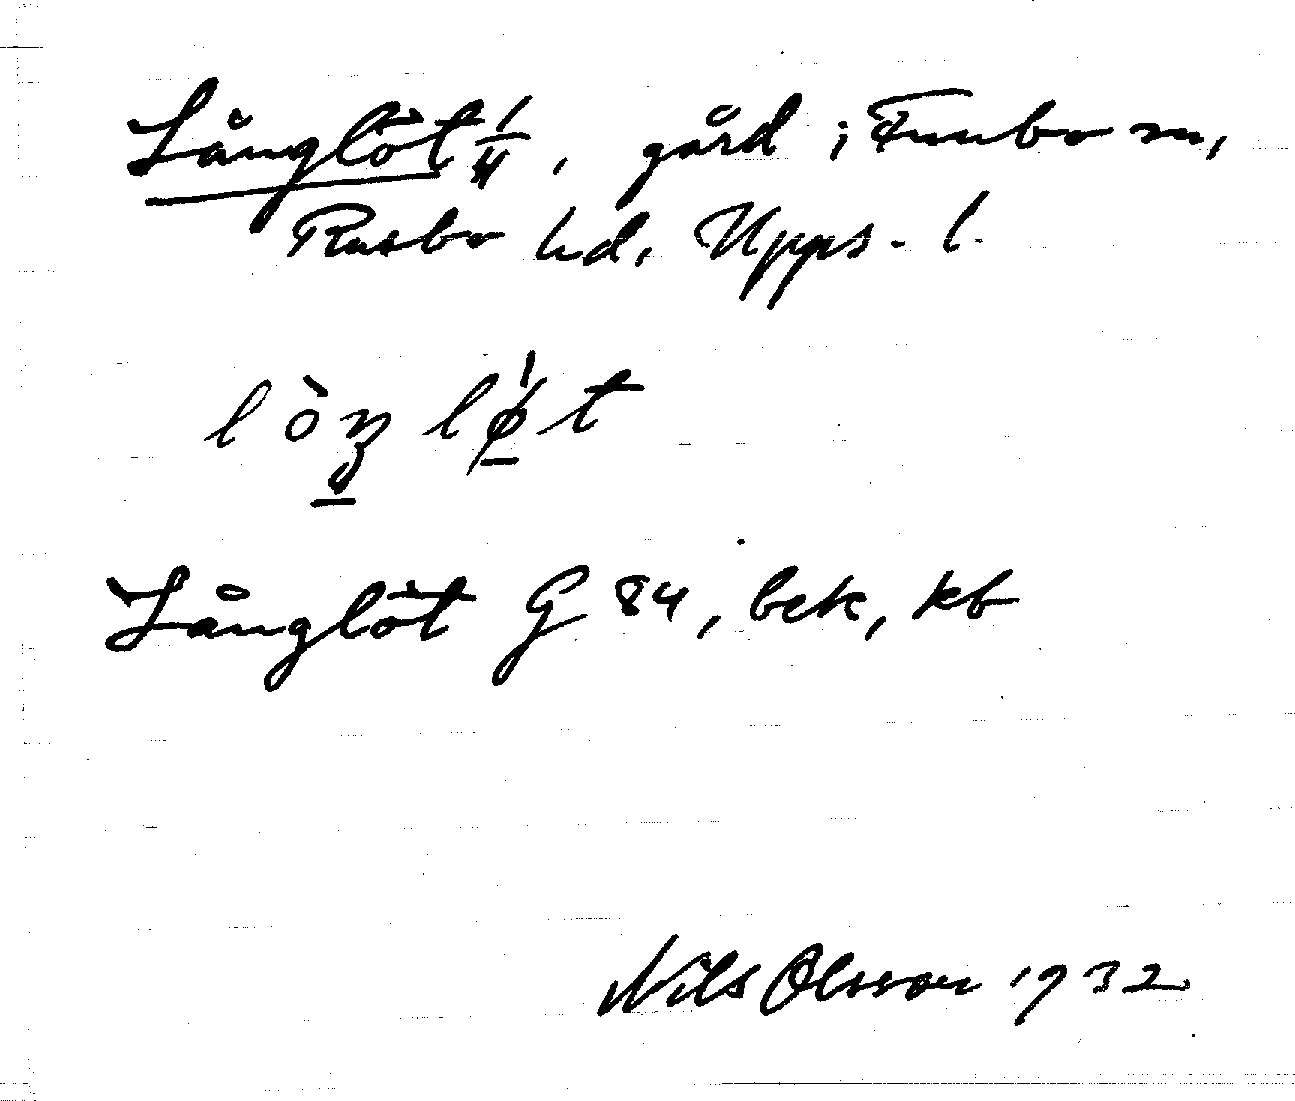 Långlöt 1/4, gård i Funbo sn,
Rasbo hd, Upps. l.
lòŋlǿt
Långlöt G 84, bek, kb
Nils Olsson 1932